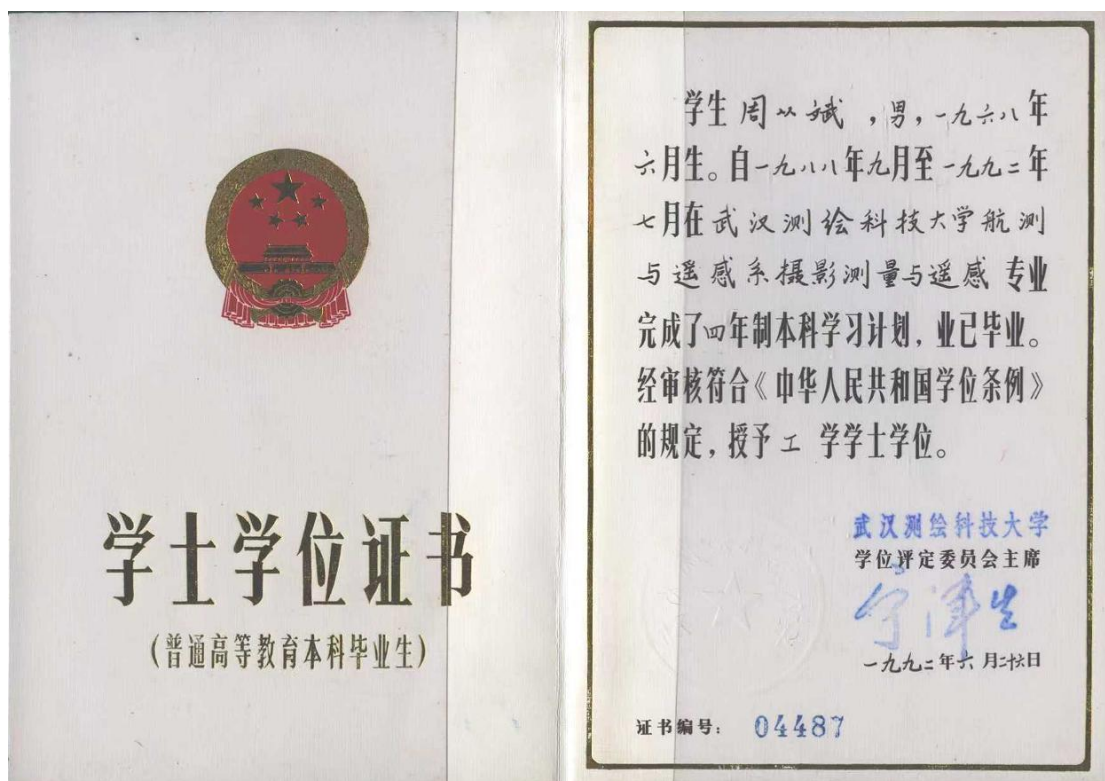 学士学位证书
(普通高等教育本科毕业生)
学生 周从斌 ,男,一九六八年
六月生。自一九八八年九月至一九九二年
七月在武汉测绘科技大学航测
与遥感系摄影测量与遥感 专业
完成了四年制本科学习计划,业已毕业。
经审核符合《中华人民共和国学位条例》
的规定,授予 工 学学士学位。
武汉测绘科技大学
学位评定委员会主席
宁津生
一九九二年六月二十六日
证书编号: 04487